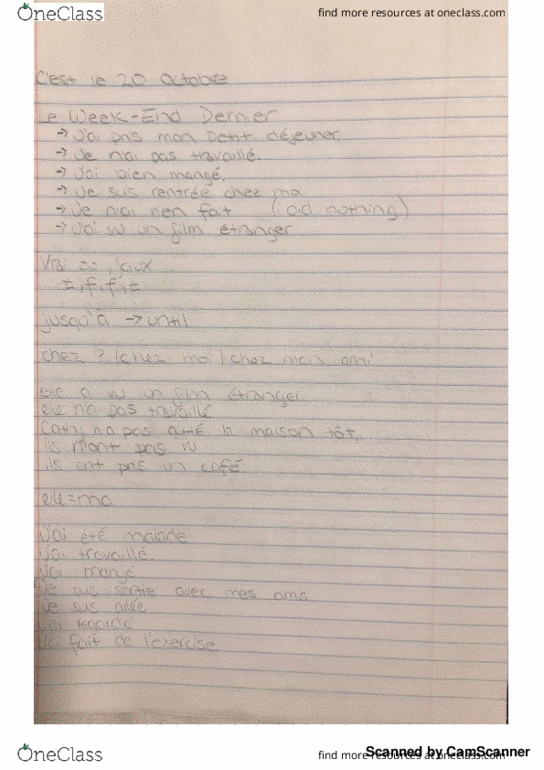 OneClass
find more resources at oneclass.com
C'est le 20 Octobre
Le Week-End Dernier
→ J'ai pris mon petit déjeuner.
→ Je n'ai pas travaillé.
→ J'ai bien mangé.
→ Je suis rentrée chez ma
→ Je n'ai rien fait (i did nothing)
→ J'ai vu un film étranger
Vrai ou faux
jusqu'à → until
chez ? /chez moi / chez mais ami
elle a vu un film étranger
elle n'a pas travaillé
Cathy n'a pas la maison tôt.
Ils n'ont pas vu
ils ont pris un café.
elle = ma
J'ai été malade
J'ai travaillé.
J'ai mangé
Je suis sortie avec mes amis
Je suis allée
J'ai regardé
J'ai fait de l'exercise
OneClass
find more resources at oneclass.com
Scanned by CamScanner